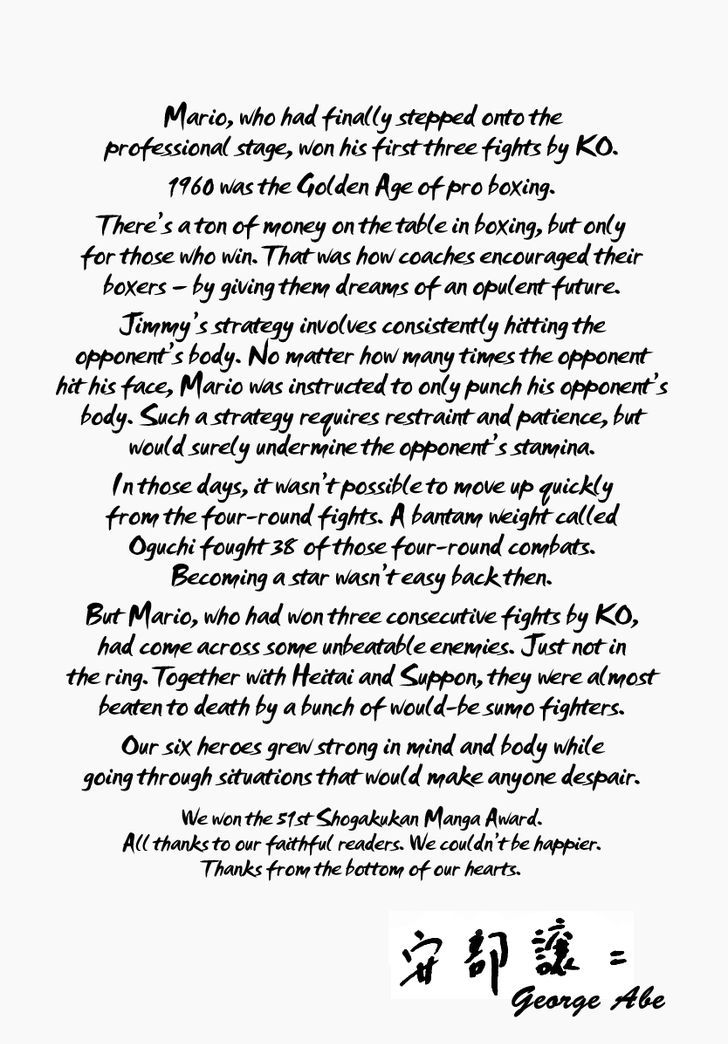 Mario, who had finally stepped onto the
professional stage, won his first three fights by KO.
1960 was the Golden Age of pro boxing.
There's a ton of money on the table in boxing, but only
for those who win. That was how coaches encouraged their
boxers – by giving them dreams of an opulent future.
Jimmy's strategy involves consistently hitting the
opponent's body. No matter how many times the opponent
hit his face, Mario was instructed to only punch his opponent's
body. Such a strategy requires restraint and patience, but
would surely undermine the opponent's stamina.
In those days, it wasn't possible to move up quickly
from the four-round fights. A bantam weight called
Oguchi fought 38 of those four-round combats.
Becoming a star wasn't easy back then.
But Mario, who had won three consecutive fights by KO,
had come across some unbeatable enemies. Just not in
the ring. Together with Heitai and Suppon, they were almost
beaten to death by a bunch of would-be sumo fighters.
Our six heroes grew strong in mind and body while
going through situations that would make anyone despair.
We won the 51st Shogakukan Manga Award.
All thanks to our faithful readers. We couldn't be happier.
Thanks from the bottom of our hearts.
安部譲二
George Abe